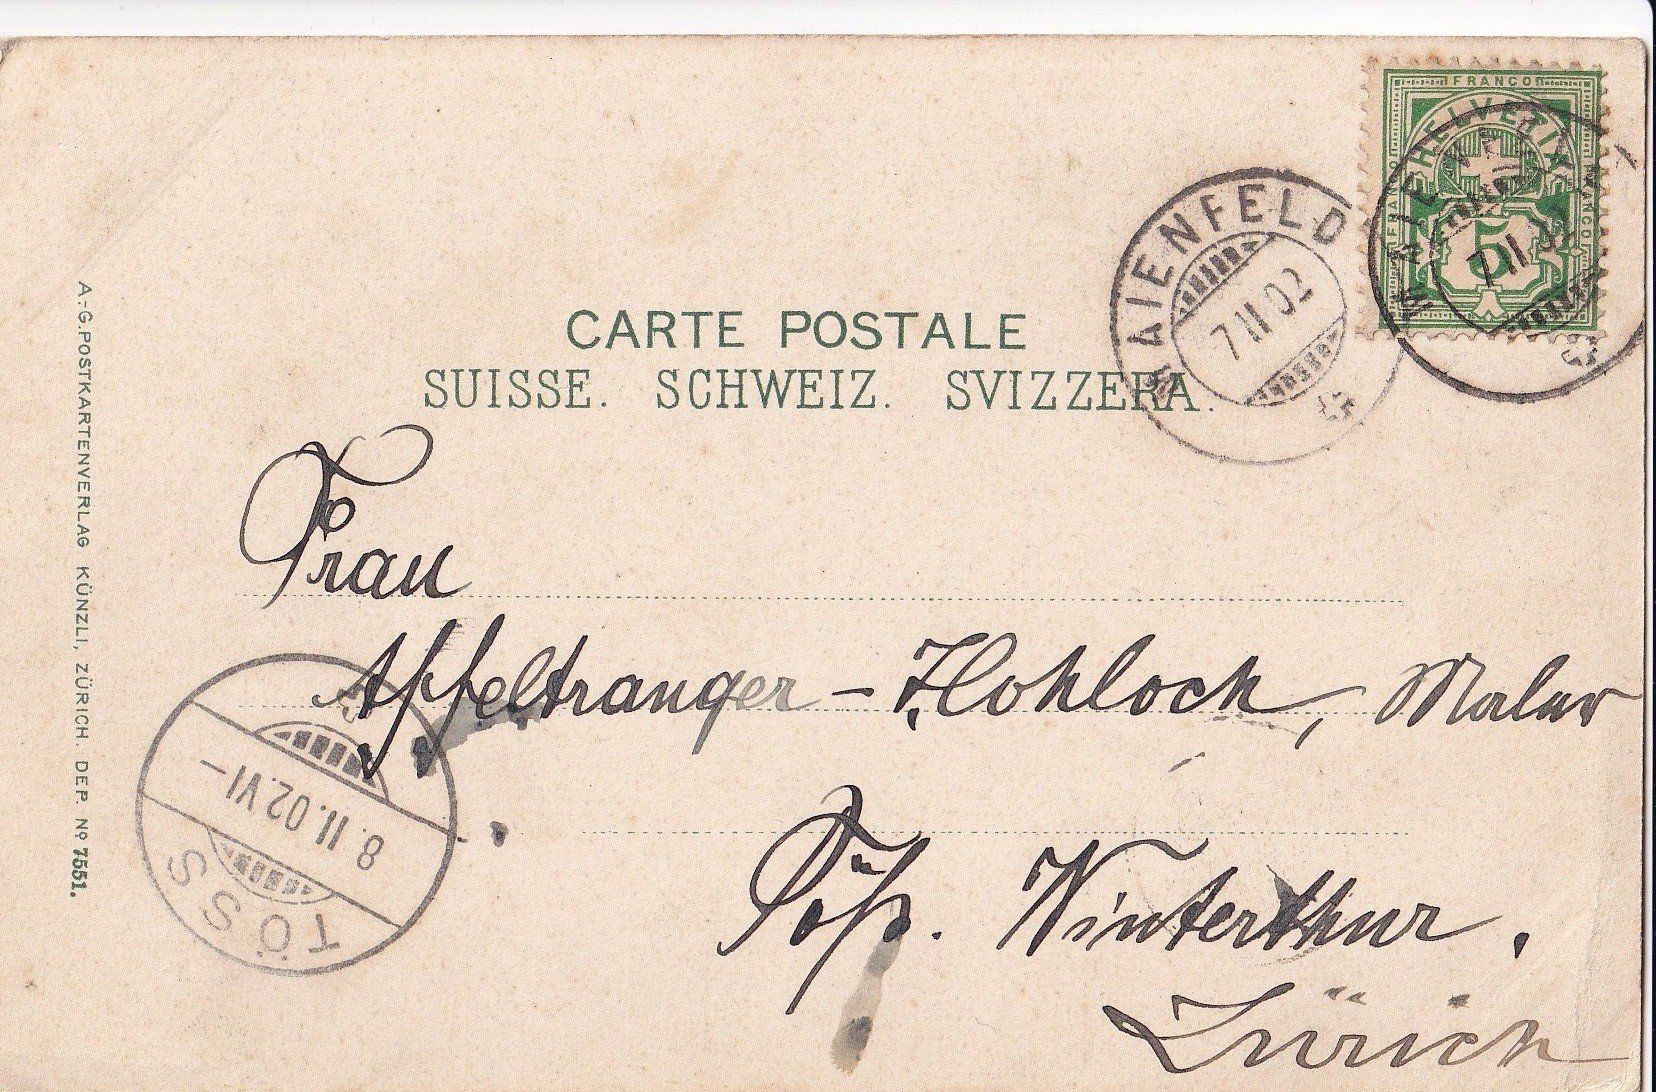 FRANCO
FRANCO
FRANCO
HELVETIA
5
MAIENFELD
7 II 02
MAIENFELD
7 II 02
CARTE POSTALE
SUISSE. SCHWEIZ. SVIZZERA.
Frau
Apfeltranger - Hohloch, Maler
Töß. Winterthur.
Zürich
TÖSS
8. II. 02. VI –
A.-G. POSTKARTENVERLAG KÜNZLI, ZÜRICH. DEP. No 7551.